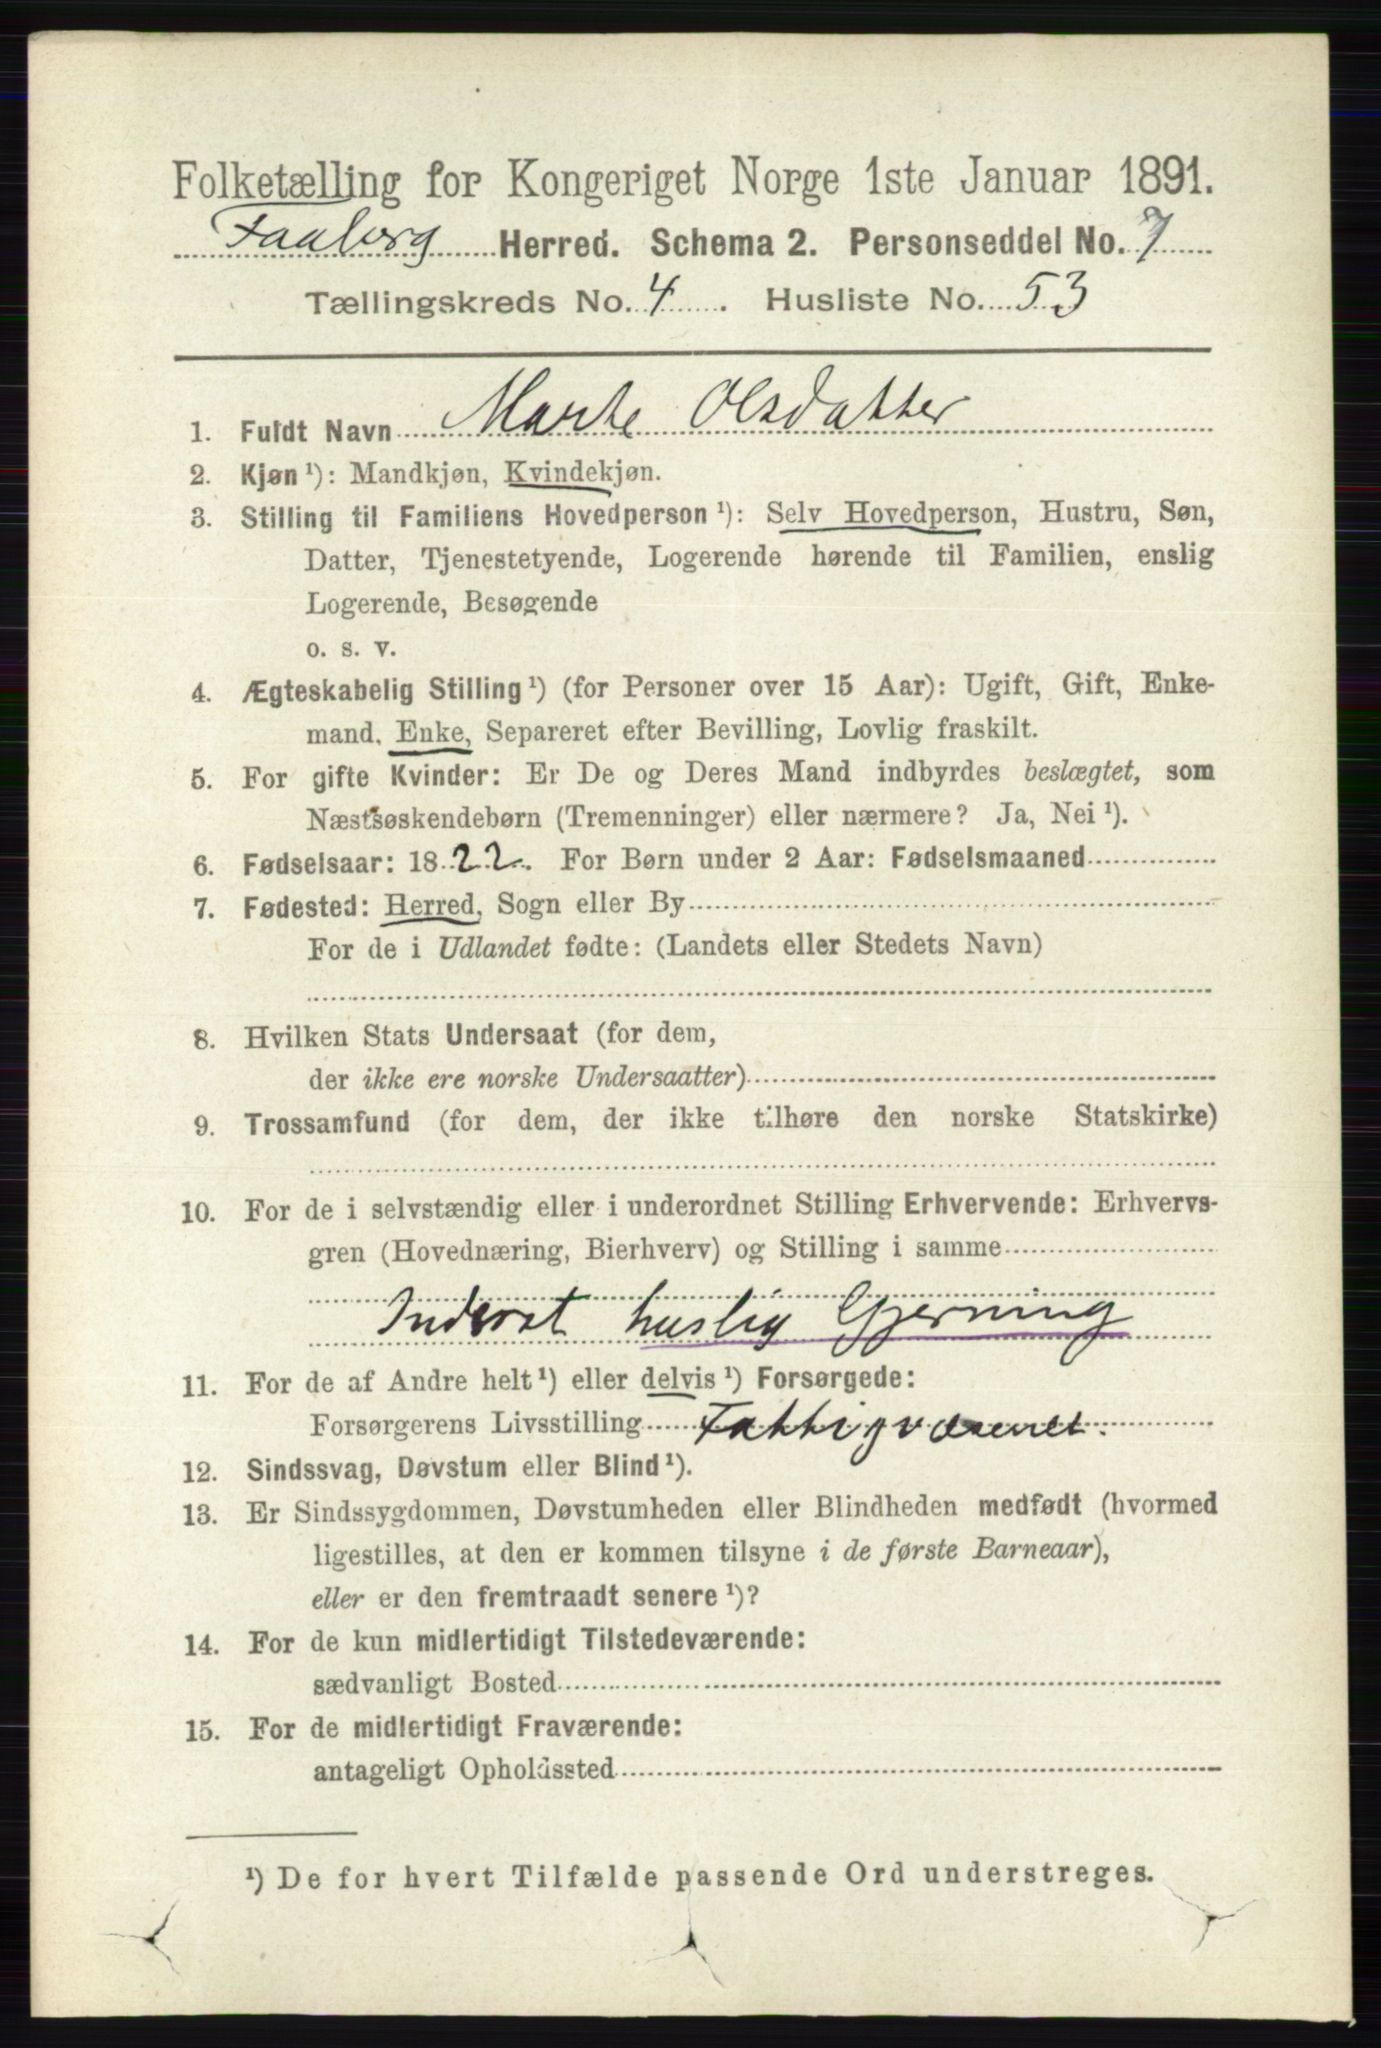 Folketælling for Kongeriget Norge 1ste Januar 1891.
Faaberg Herred. Schema 2. Personseddel No. 7
Tællingskreds No. 4. Husliste No. 53
1. Fuldt Navn Marte Olsdatter
2. Kjøn ¹): Mandkjøn, Kvindekjøn.
3. Stilling til Familiens Hovedperson ¹): Selv Hovedperson, Hustru, Søn,
Datter, Tjenestetyende, Logerende hørende til Familien, enslig
Logerende, Besøgende
o. s. v.
4. Ægteskabelig Stilling ¹) (for Personer over 15 Aar): Ugift, Gift, Enke-
mand, Enke, Separeret efter Bevilling, Lovlig fraskilt.
5. For gifte Kvinder: Er De og Deres Mand indbyrdes beslægtet, som
Næstsøskendebørn (Tremenninger) eller nærmere? Ja, Nei ¹).
6. Fødselsaar: 1822. For Børn under 2 Aar: Fødselsmaaned
7. Fødested: Herred, Sogn eller By
For de i Udlandet fødte: (Landets eller Stedets Navn)
8. Hvilken Stats Undersaat (for dem,
der ikke ere norske Undersaatter)
9. Trossamfund (for dem, der ikke tilhøre den norske Statskirke)
10. For de i selvstændig eller i underordnet Stilling Erhvervende: Erhvervs-
gren (Hovednæring, Bierhverv) og Stilling i samme
Inderst huslig Gjerning
11. For de af Andre helt ¹) eller delvis ¹) Forsørgede:
Forsørgerens Livsstilling Fattigvæsenet.
12. Sindssvag, Døvstum eller Blind ¹).
13. Er Sindssygdommen, Døvstumheden eller Blindheden medfødt (hvormed
ligestilles, at den er kommen tilsyne i de første Barneaar),
eller er den fremtraadt senere ¹)?
14. For de kun midlertidigt Tilstedeværende:
sædvanligt Bosted
15. For de midlertidigt Fraværende:
antageligt Opholdssted
¹) De for hvert Tilfælde passende Ord understreges.